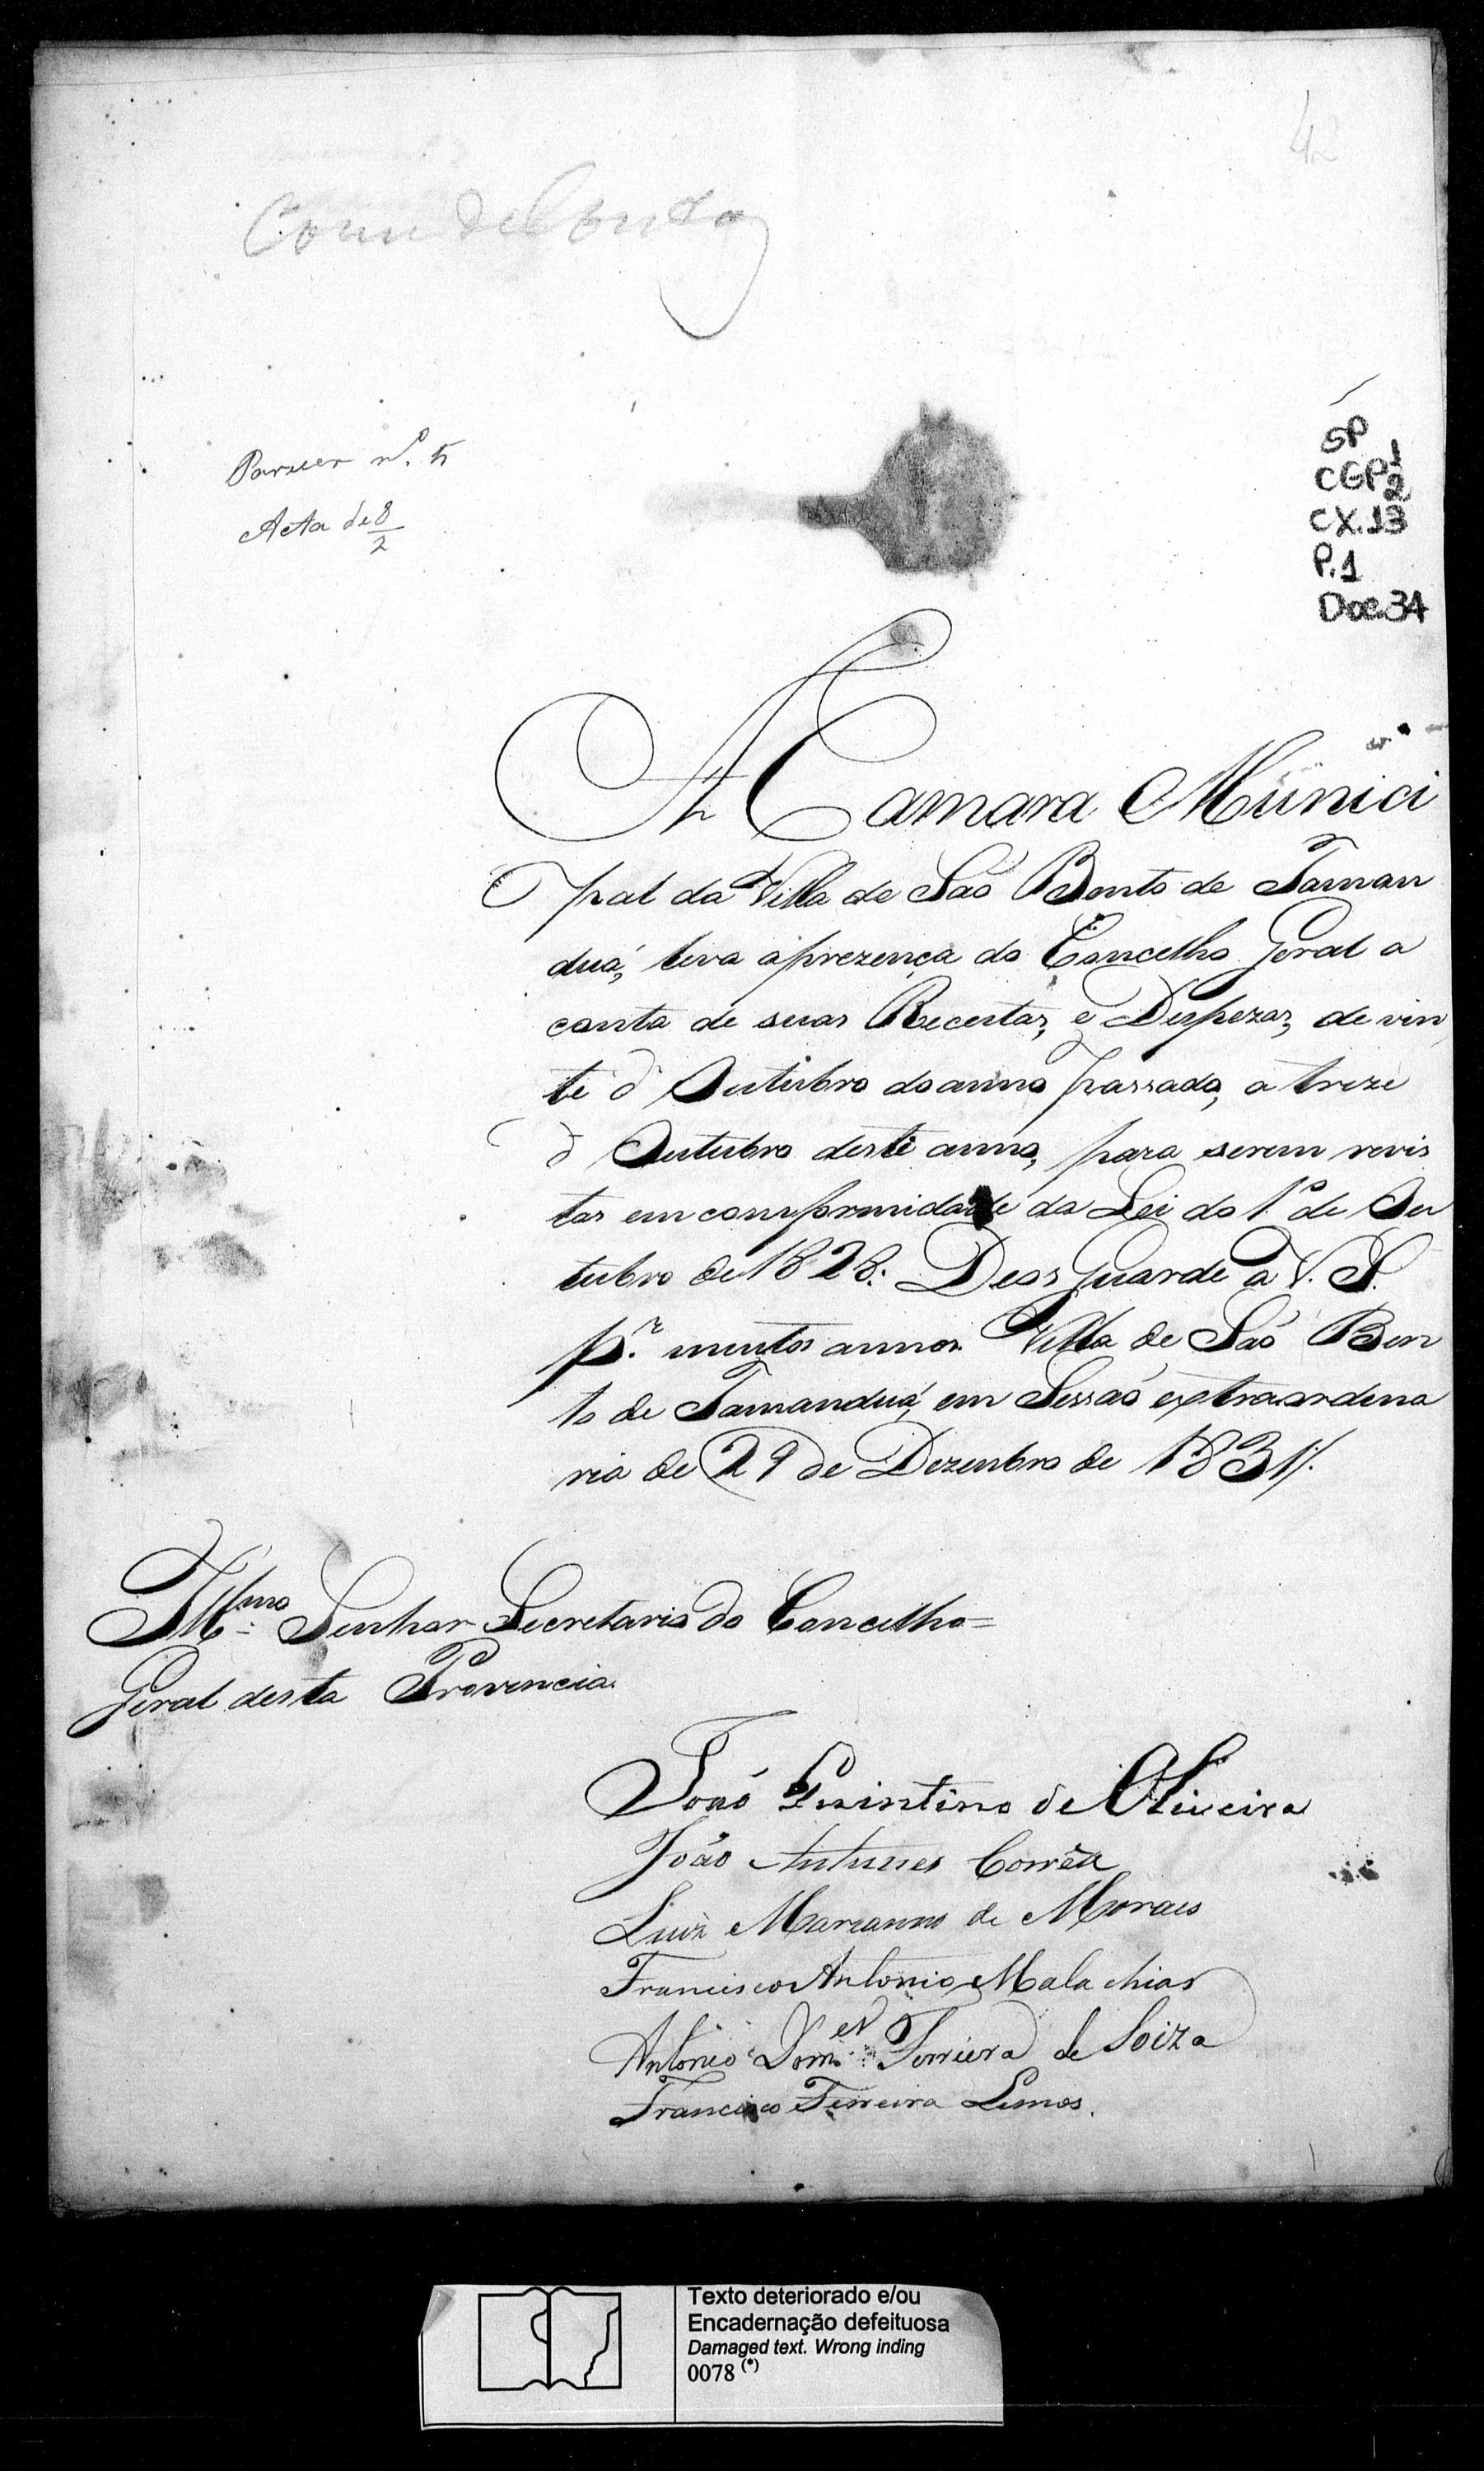 42
Com de Conta
Parecer nº. 5
Acta de 8
2
SP
CGP1
2
CX.13
P.1
Doc.34
A Camara Munici
pal da Villa de Saõ Bento de Taman
duá, leva aprezença do Concelho Geral a
conta de suas Receitas, e Despezas, de vin
te d' Outubro do anno passado, a treze
d' Outubro deste anno, para serem revis
tas em comformidade da Lei do 1º de Ou
tubro de 1828. Deos Guarde a V. S.
p.r muitos annos. Villa de Saõ Ben
to de Tamanduá, em Sessaõ extraordena
ria de 29 de Dezembro de 1831//.
Illmo Senhor Secretario do Concelho=
Geral desta Provencia.
Joaõ Quintino de Oliveira
João Antunes Corrêa
Luiz Marianno de Moraes
Francisco Antonio Malachias
Antonio Dom.es Ferriera de Soiza
Francisco Ferreira Lemos.
Texto deteriorado e/ou
Encadernação defeituosa
Damaged text. Wrong inding
0078 (*)